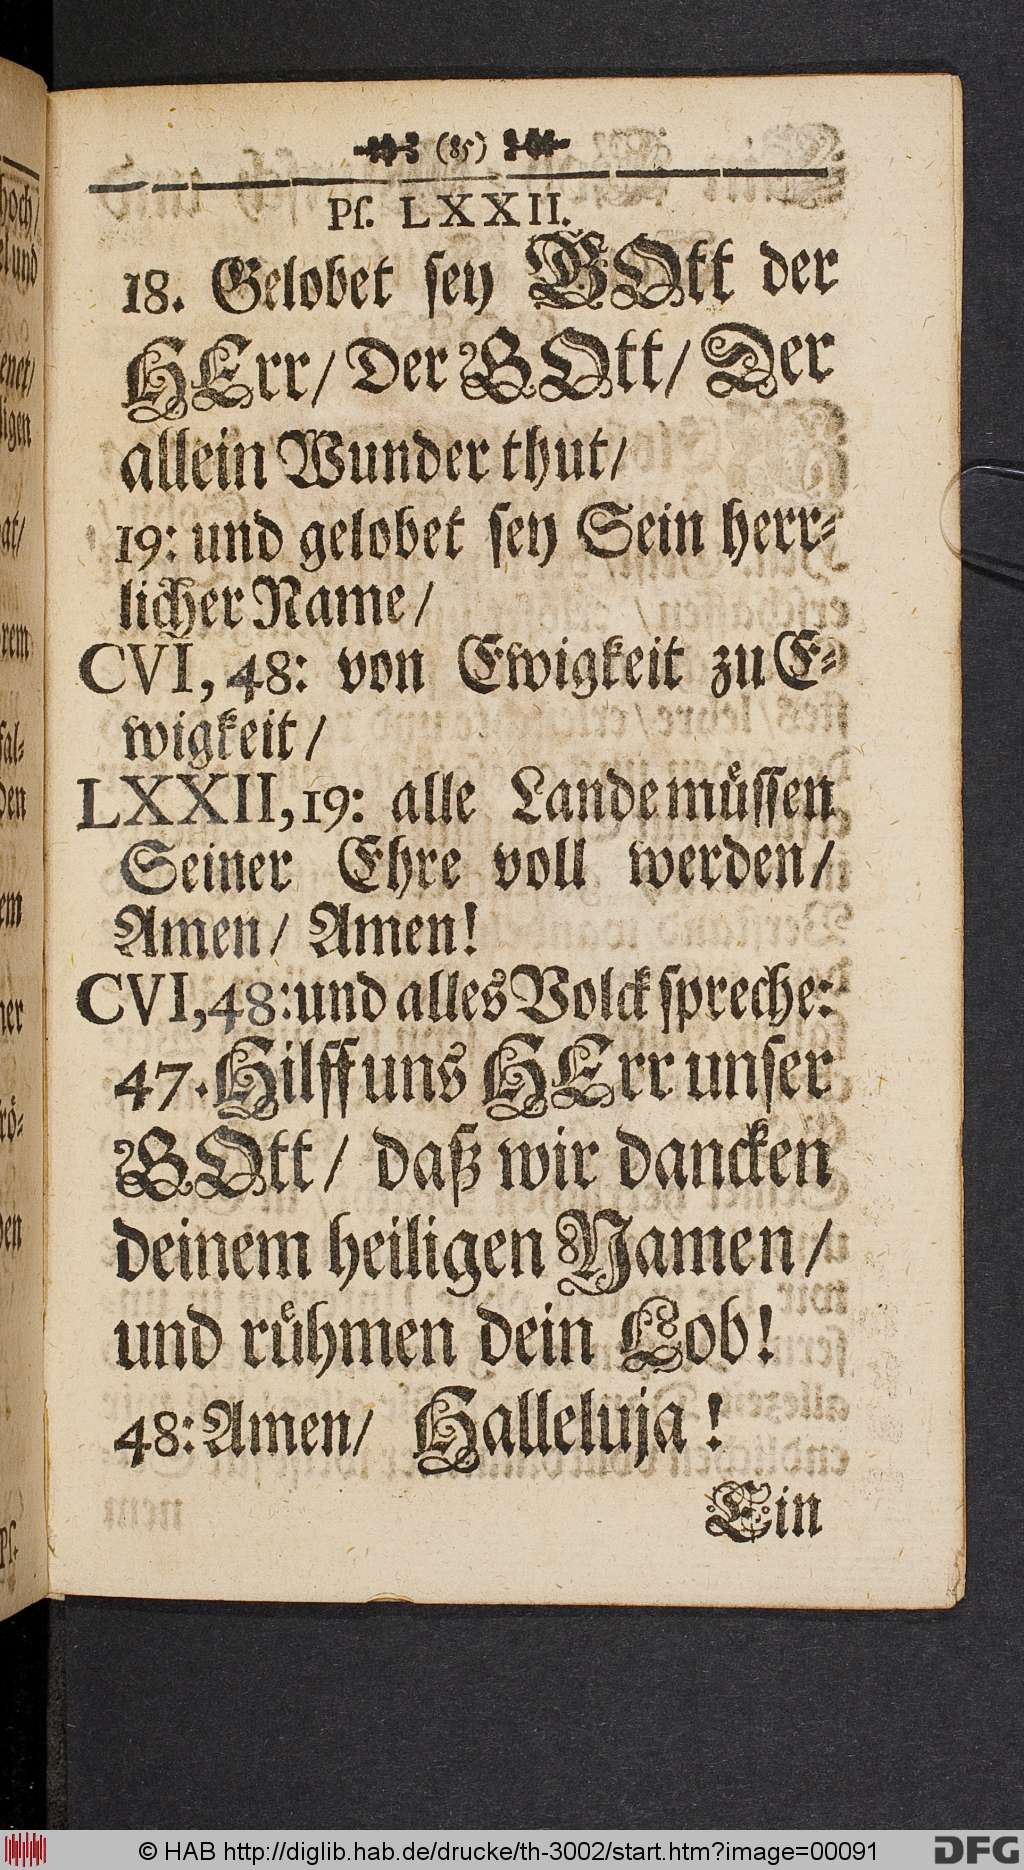 (85)
Pſ. LXXII.
18. Gelobet ſey GOtt der
HErr/ Der GOtt/ Der
allein Wunder thut/
19: und gelobet ſey Sein herr-
licher Name/
CVI, 48: von Ewigkeit zu E-
wigkeit/
LXXII, 19: alle Lande muͤſſen
Seiner Ehre voll werden/
Amen/ Amen!
CVI, 48: und alles Volck ſpreche:
47. Hilff uns HErr unſer
GOtt/ daß wir dancken
deinem heiligen Namen/
und ruͤhmen dein Lob!
48: Amen/ Halleluja!
Ein
hoch/
und
enet/
ligen
at/
rem
fal-
den
em
ner
rö-
den
Pſ.
© HAB http://diglib.hab.de/drucke/th-3002/start.htm?image=00091
DFG